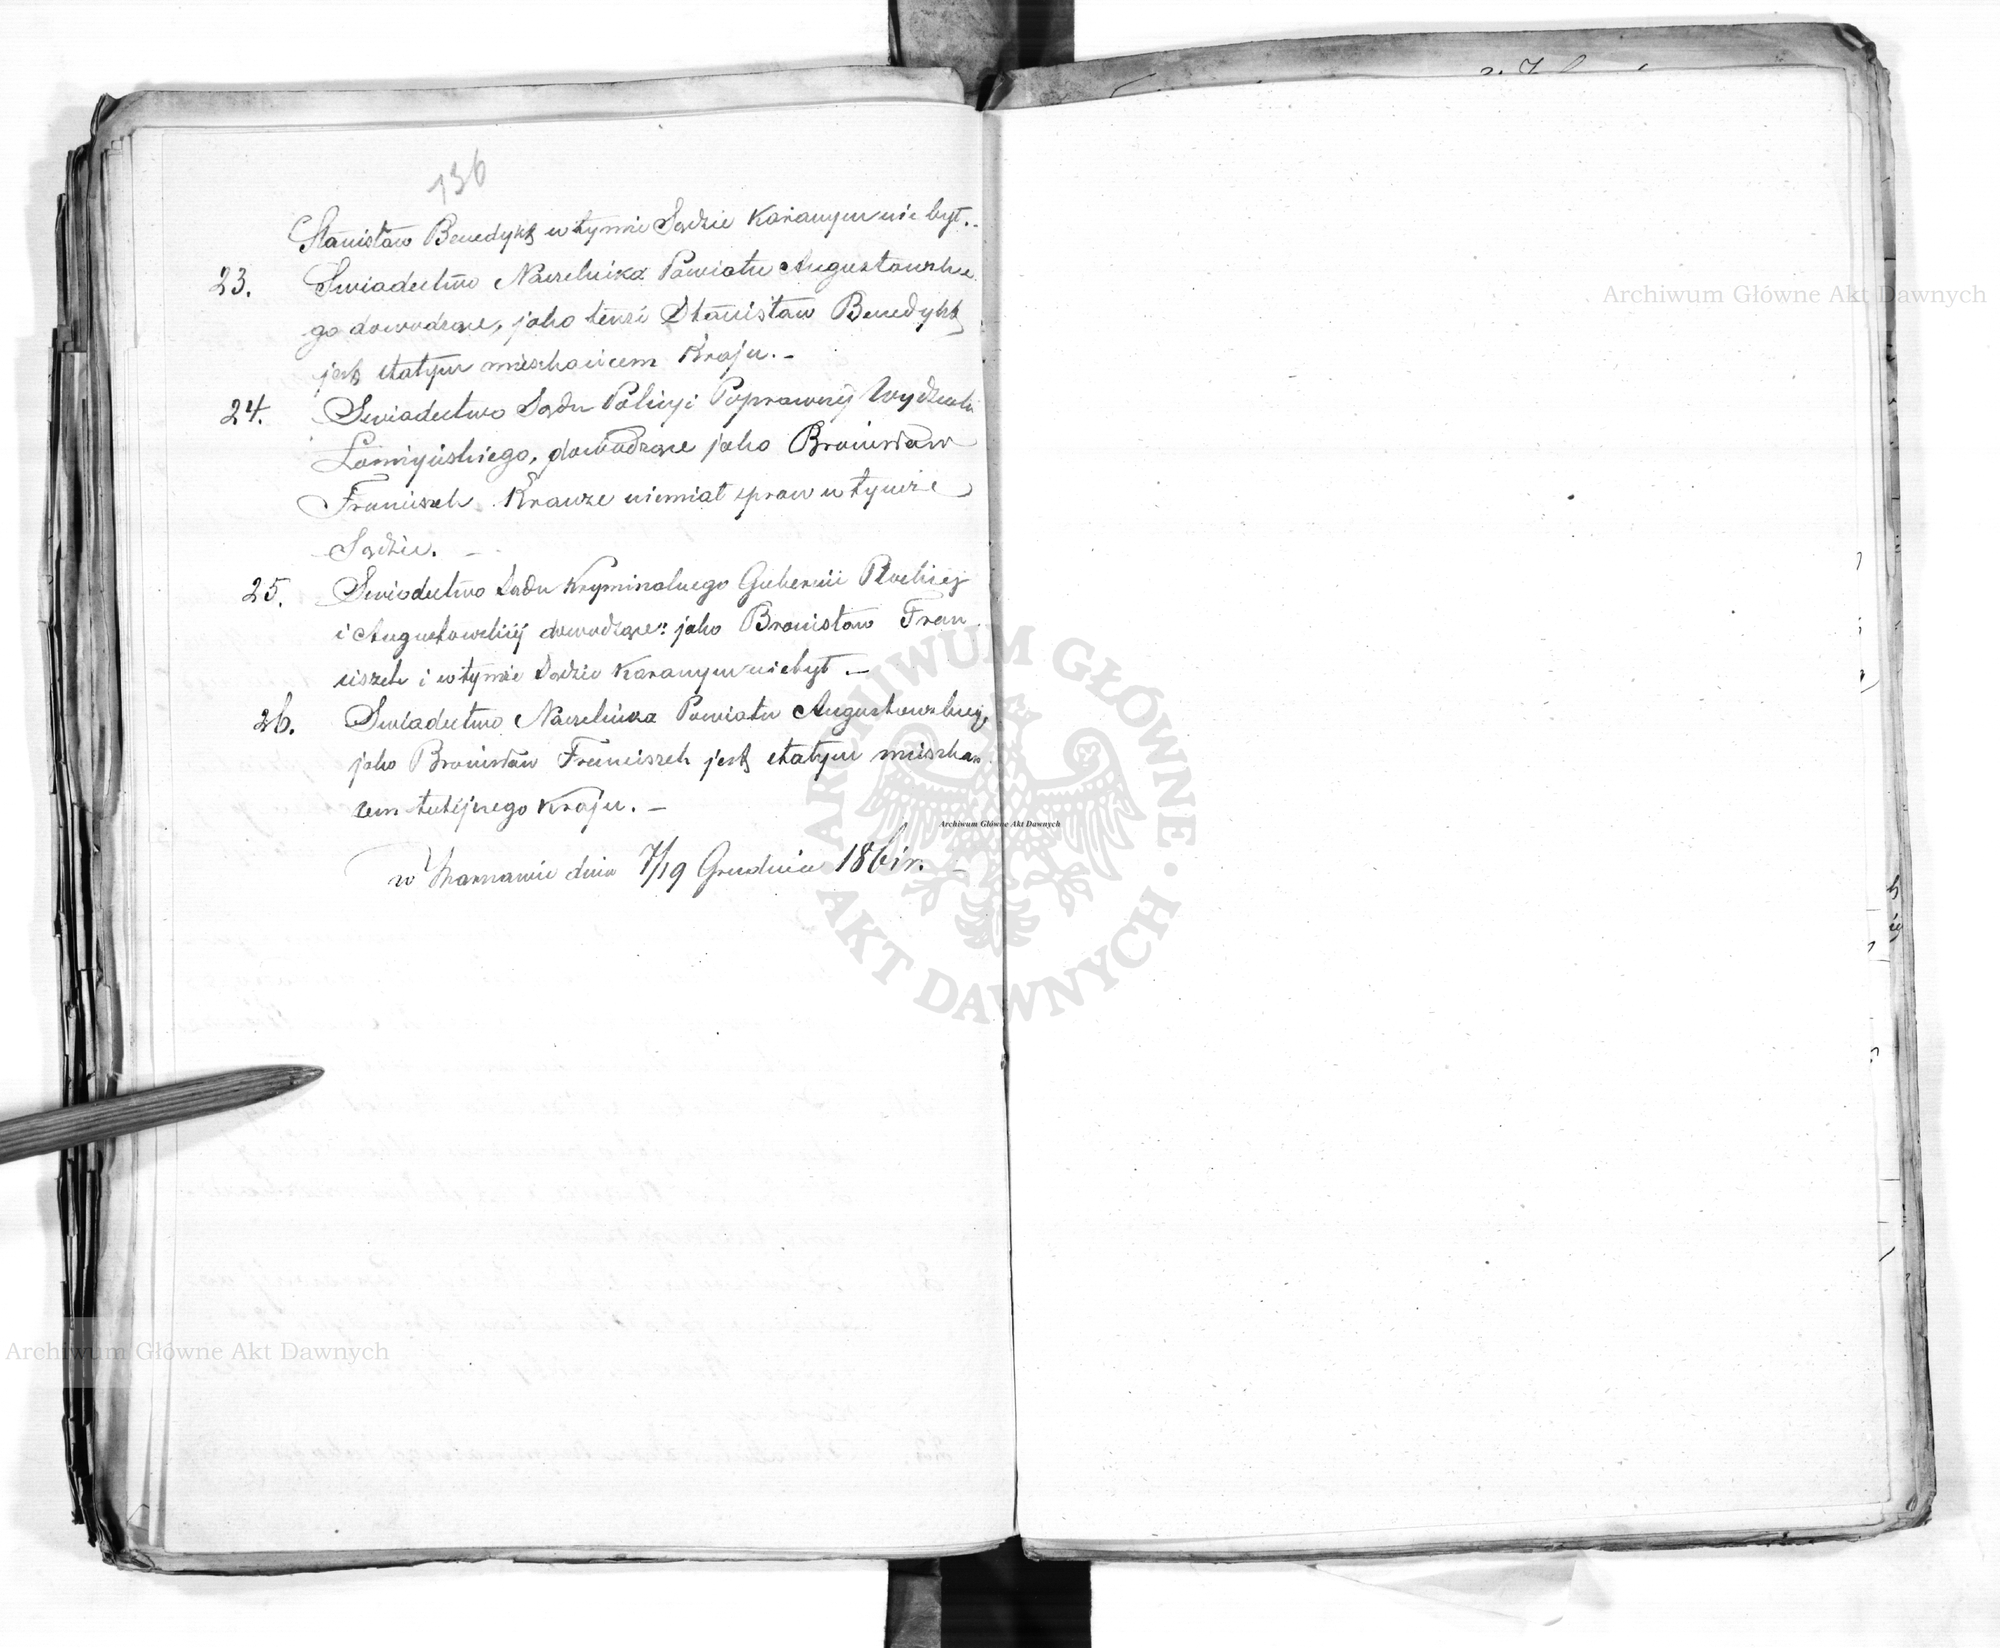 136
Stanisław Benedykt w tymże Sądzie Karanym nie był.-
23. Swiadectwo Naczelnika Powiatu Augustowskie
go dowodzące, jako tenże Stanisław Benedykt
jest stałym mieszkańcem Kraju. -
24. Swiadectwo Sądu Policyi Poprawczej Wydziału
Łomżyńskiego, dowodzące jako Bronisław
Franciszek Krauze niemiał spraw w tymże
Sądzie. -
25. Swiadectwo Sądu Kryminalnego Gubernii Płockiej
i Augustowskiej dowodzące: jako Bronisław Fran
ciszek i w tymże Sądzie Karanym niebył -
26. Swiadectwo Naczelnika Powiatu Augustowskiego,
jako Bronisław Franciszek jest stałym mieszkań
cem tutejszego Kraju. -
w Warszawie dnia 7/19 Grudnia 1861 r. -
Archiwum Główne Akt Dawnych
ARCHIWUM GŁÓWNE AKT DAWNYCH
Archiwum Główne Akt Dawnych
Archiwum Główne Akt Dawnych